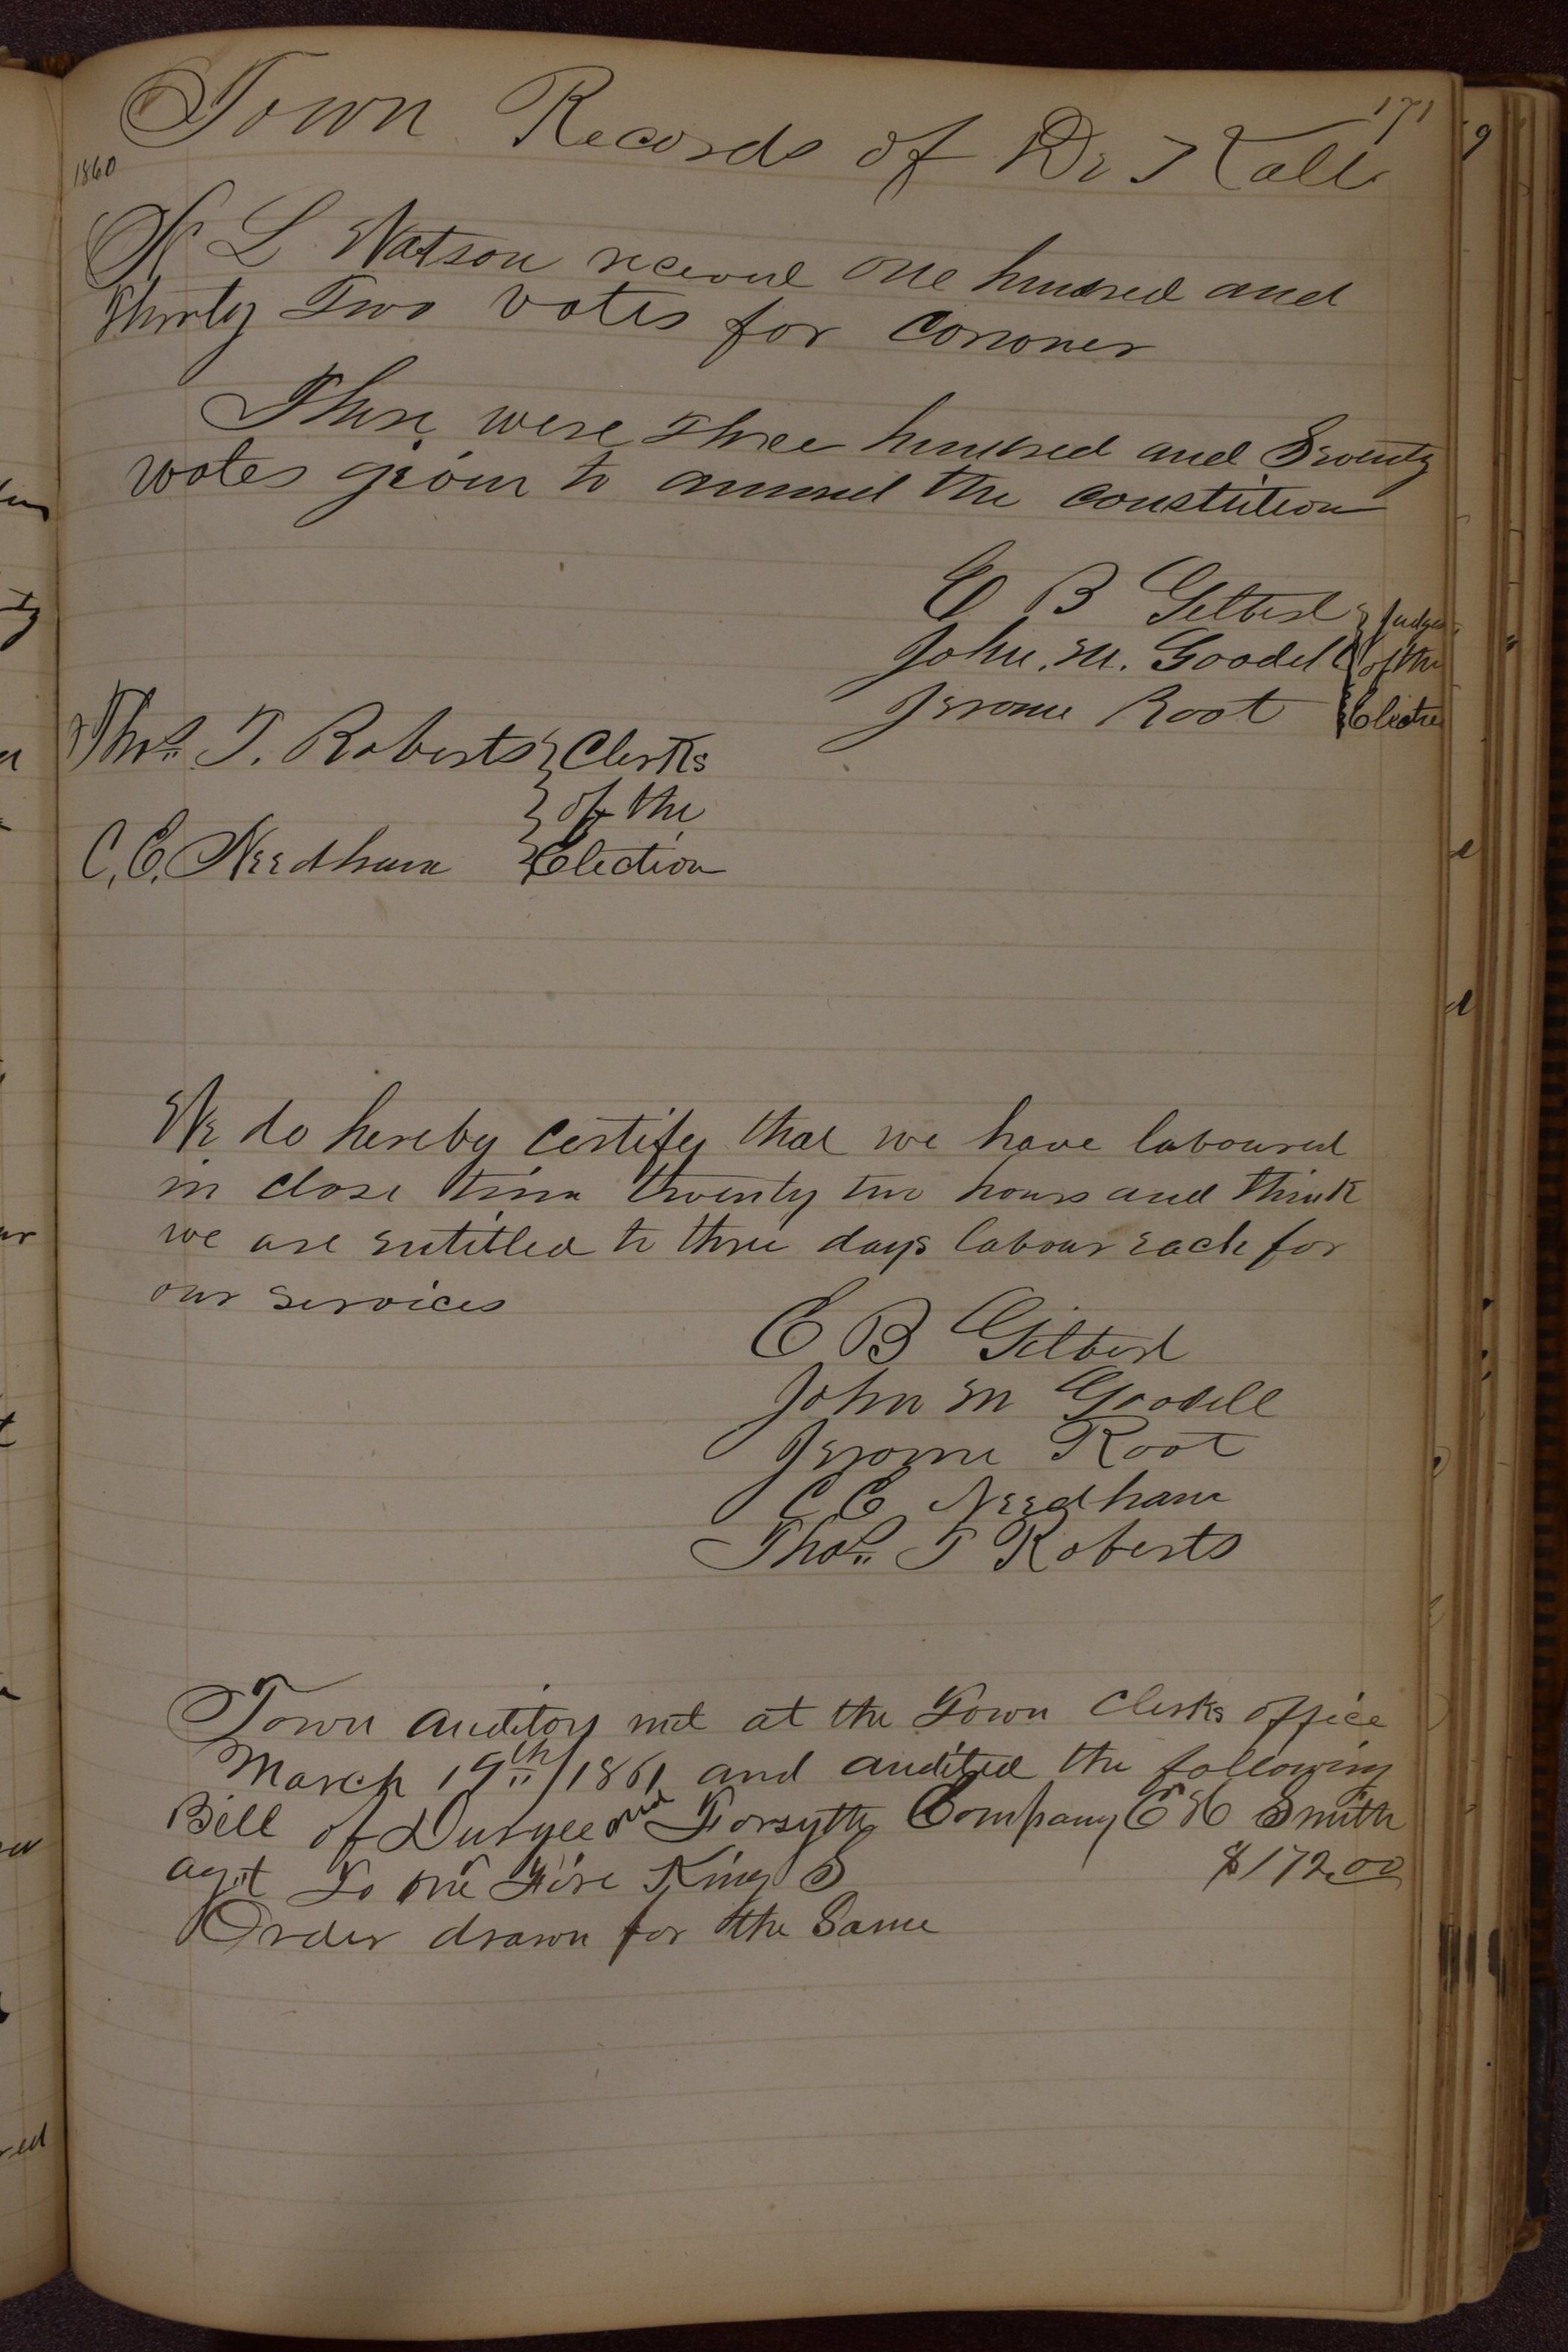 171
Town Records of De Kalb
1860
K L Watson received one hundred and
Thirty Two votes for Coroner
There were three hundred and Seventy
votes given to amend the constitution
E B Gilbert } Judges
John. M. Goodell } of the
Jerome Root } Electio
Thos. T. Roberts } Clerks
} of the
C. E. Needham } Election
We do hereby certify that we have laboured
in close time twenty two hours and think
we are entitled to three days labour each for
our services
E B Gilbert
John M Goodell
Jerome Root
C E Needham
Thos. T Roberts
Town auditors met at the Town Clerks office
March 19th / 1861 and audited the following
Bill of Duryee and Forsyth Company E H Smith
agt To one Fire King S $172.00
Order drawn for the Same